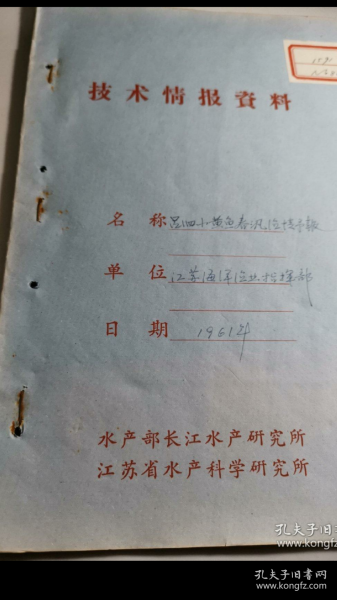 技术情报資料
名称 吕四小黄鱼春汛渔情予报
单位 江苏海洋渔业指挥部
日期 1961年
水产部长江水产研究所
江苏省水产科学研究所
孔夫子旧书网
www.kongfz.com
孔夫子旧书网